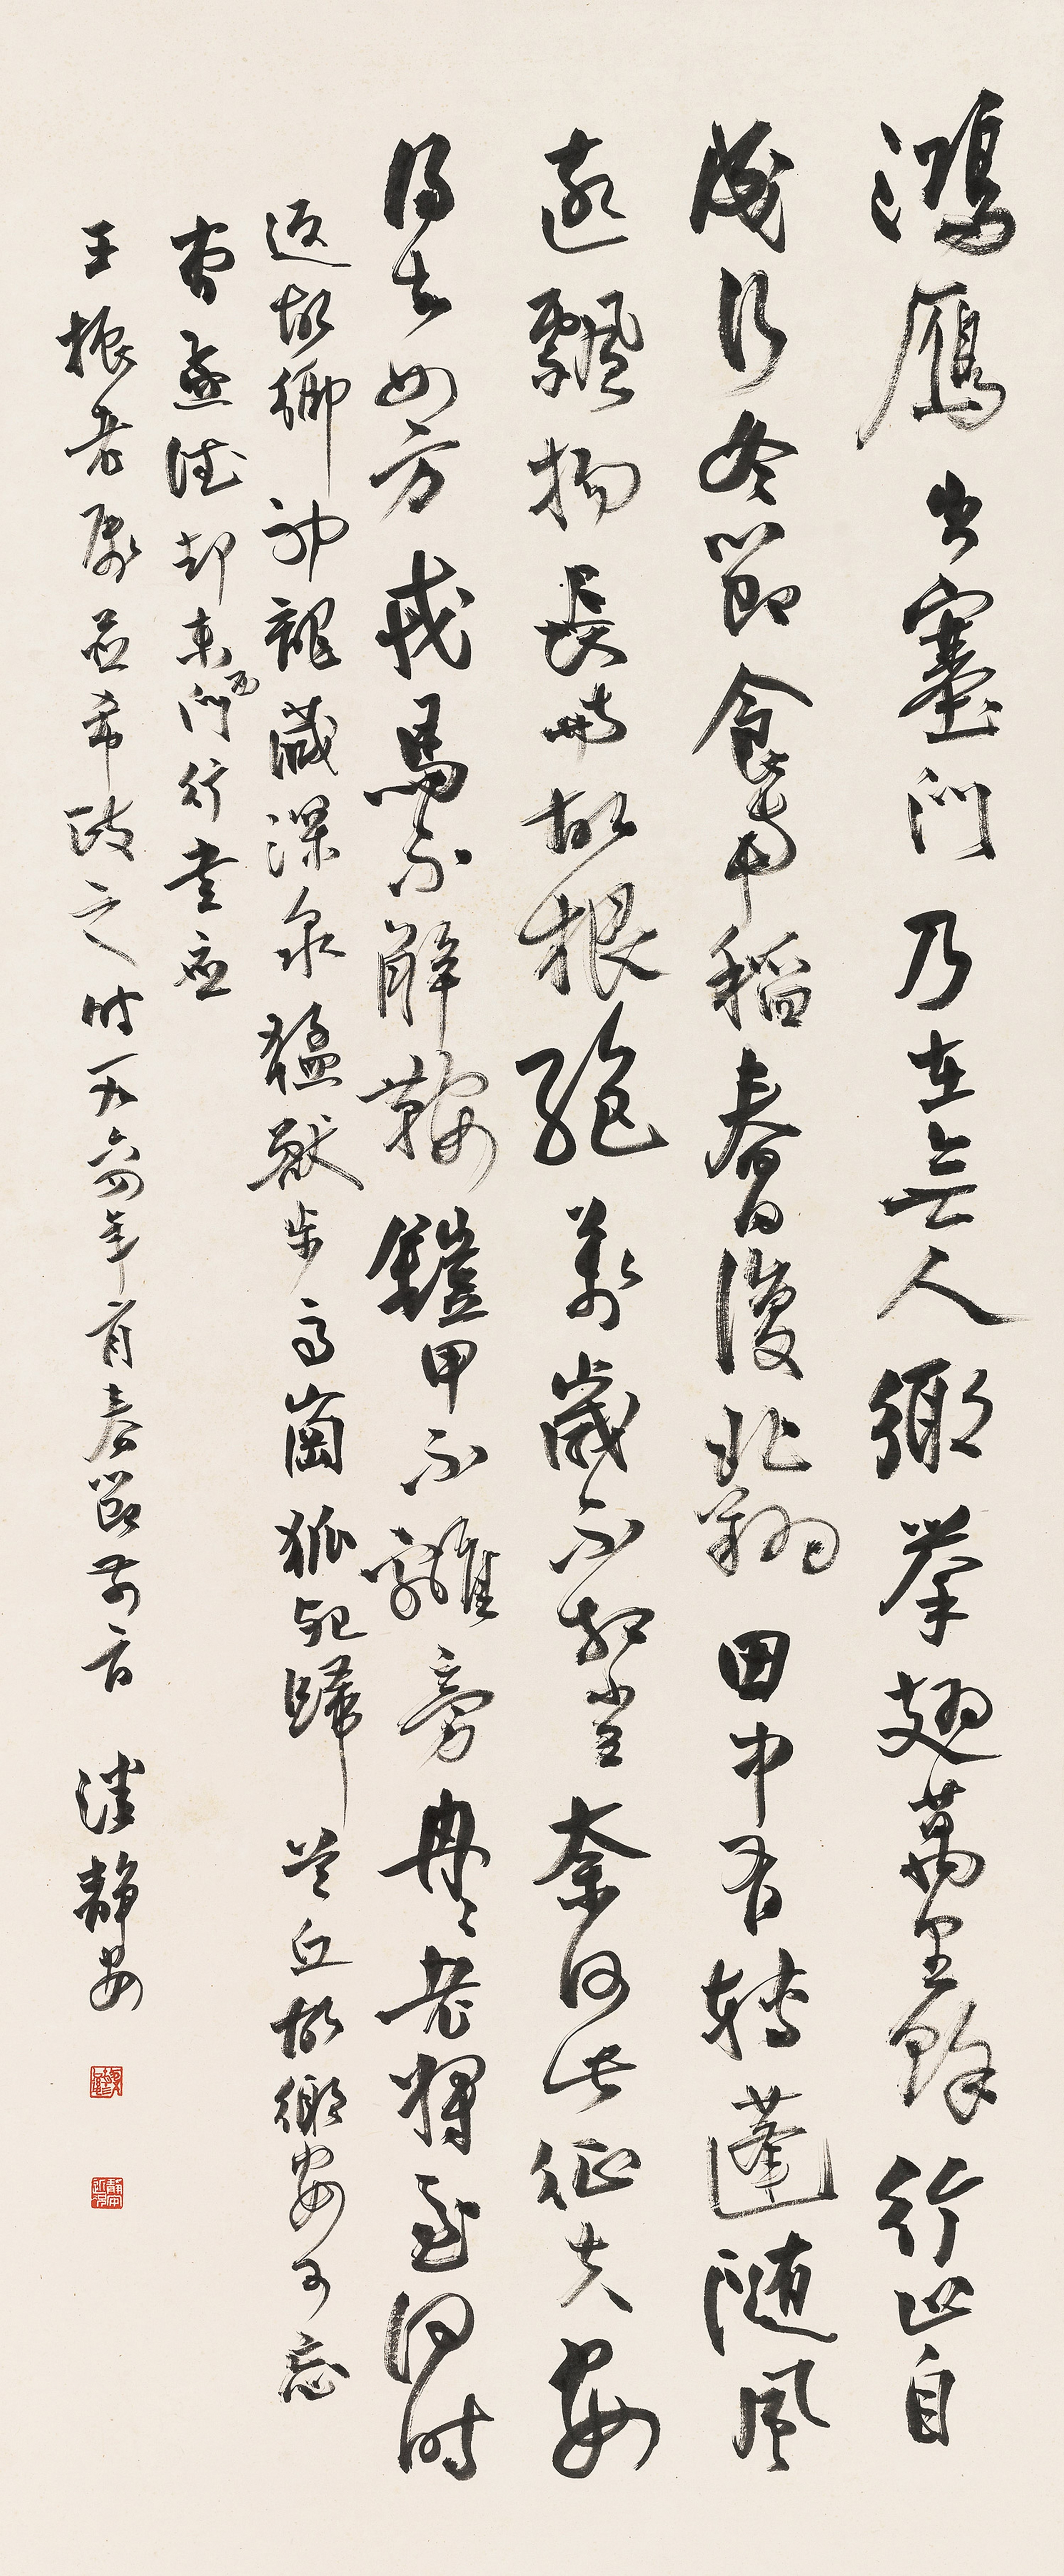 鴻雁出塞門乃在無人鄉舉翅萬里餘行止自
成行冬節食南稻春日復北翔田中有轉蓬隨風
遠飄揚長與故根絕萬歲不相當奈何此征夫安
得去四方戎馬不解鞍鎧甲不離旁冉々老將至何時
返故鄉神龍藏深泉猛獸步高崗狐死歸首丘故鄉安可忘
曹孟德却東西門行書應
王振老屬並希政之時一九六四年春節前 潘靜安